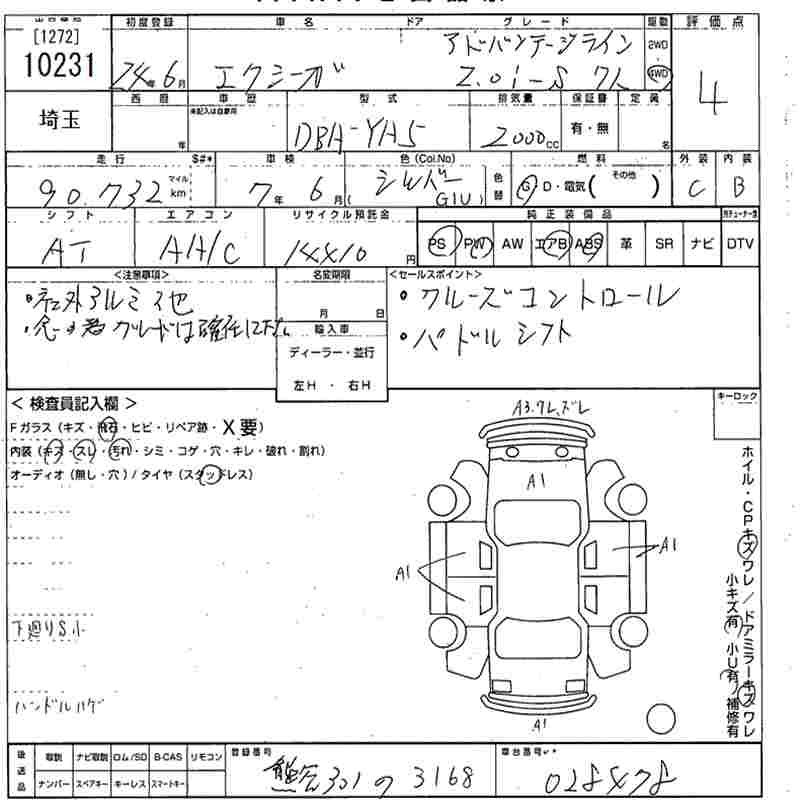 [1272]
10231
初度登録 車名 ドア グレード 駆動 評価点
24年6月 エクシーガ アドバンテージライン 2.0i-S 7人
2WD
4WD
4
埼玉
西暦 車歴 型式 排気量 保証書 定員
未記入は自家用
年 DBA-YA5 2000cc 有・無 名
走行 S#* 車検 色(Col.No) 燃料 外装 内装
90,732 マイル km 7年6月 シルバー (G1U) 色替 G・D・電気( その他 ) C B
シフト エアコン リサイクル預託金 純正装備品
AT AA/C 円 PS PW AW エアB ABS 革 SR ナビ DTV
<注意事項> 名変期限 <セールスポイント>
・社外アルミ 他 ・クルーズコントロール
月 日
輸入車 ・パドルシフト
ディーラー・並行
左H ・ 右H
< 検査員記入欄 > キーロック
Fガラス (キズ・飛石・ヒビ・リペア跡・X要)
内装 (キズ・スレ・汚れ・シミ・コゲ・穴・キレ・破れ・割れ)
オーディオ (無し・穴) / タイヤ (スタッドレス)
A3.ワレ.ズレ
A1
A1
A1
A1
ホイル・CPキズワレ/ドアミラーキズワレ
小キズ有 小U有 補修有
下廻りS小
ハンドルハゲ
後送品 取説 ナビ取説 ロム/SD B-CAS リモコン 登録番号 車台番号
ナンバー スペアキー キーレス スマートキー 熊谷301の3168 028478